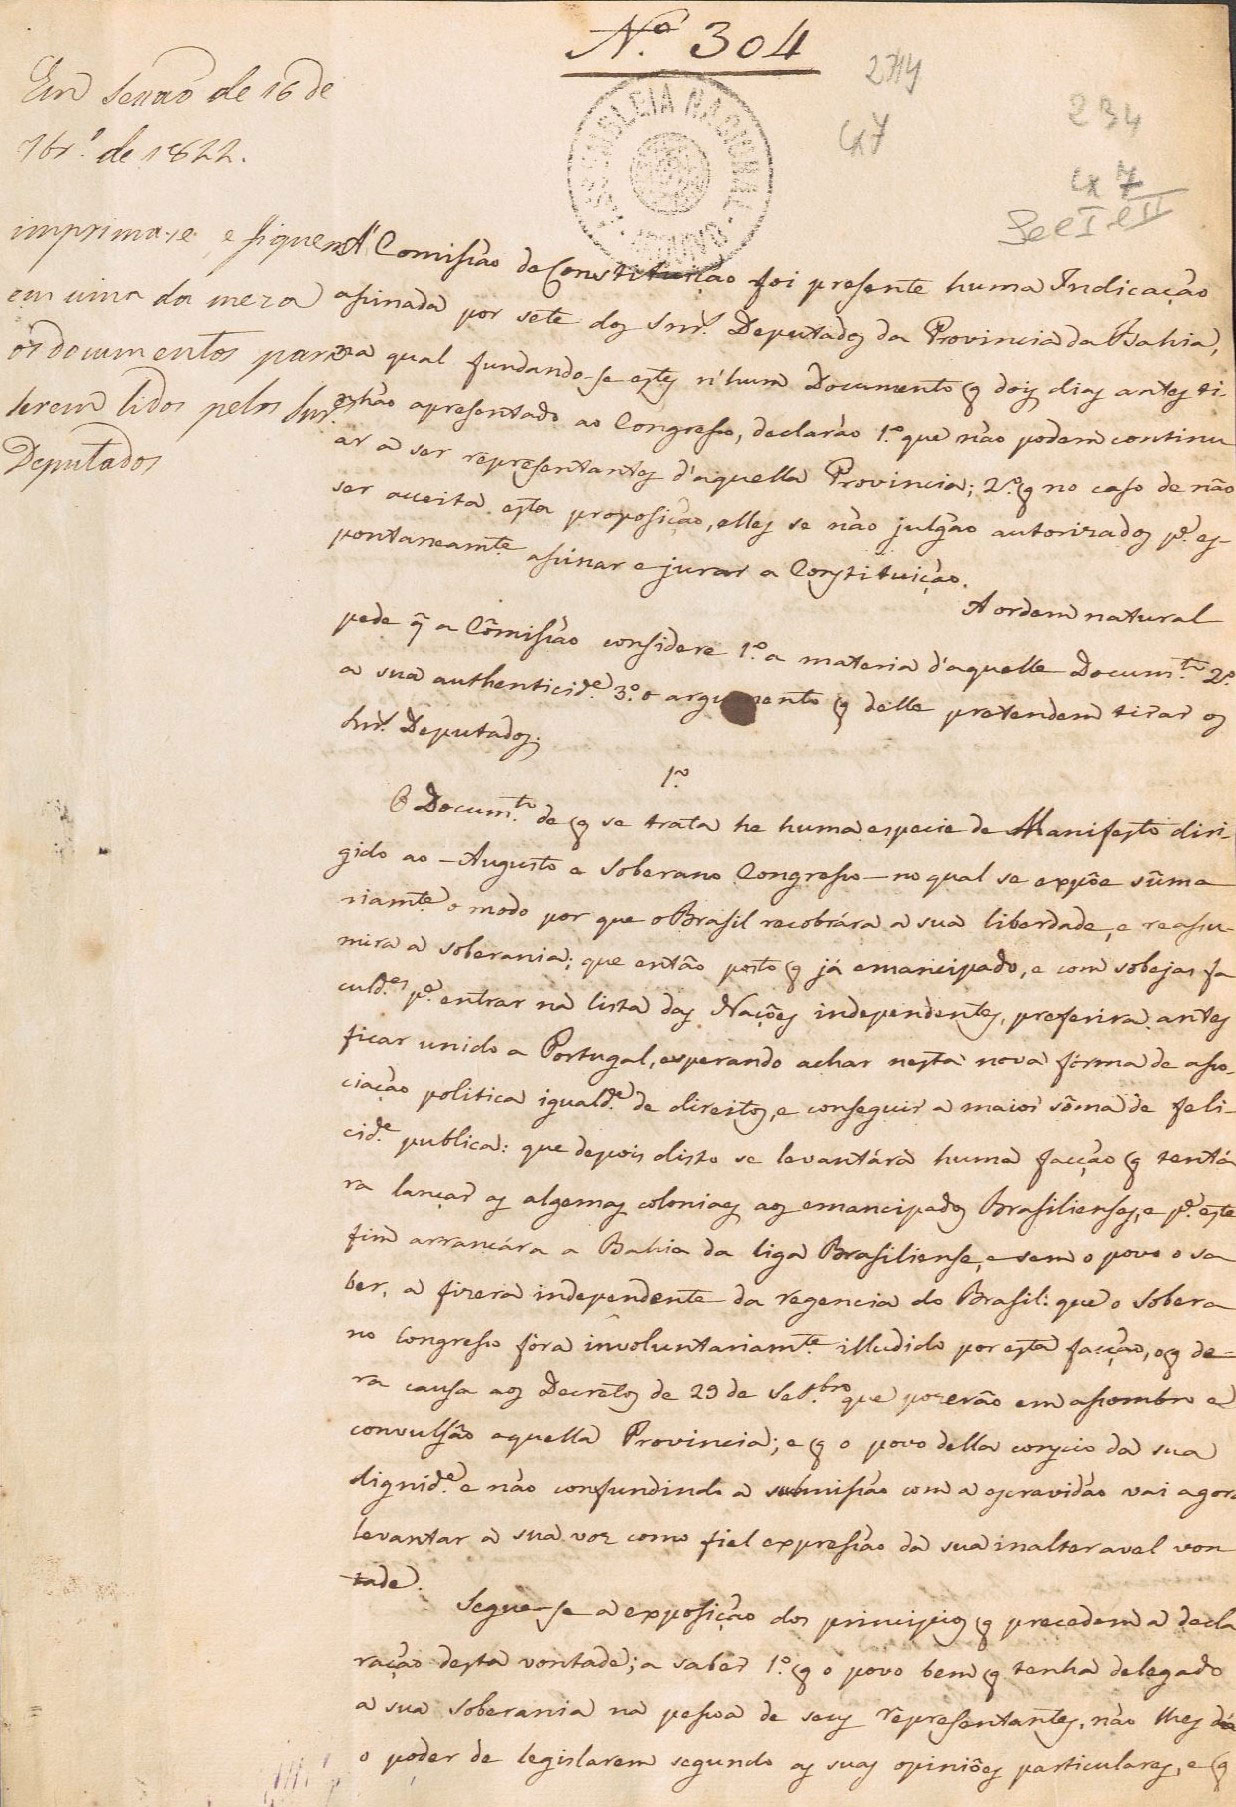 N.º 304
2719
cx 7
234
cx 7
Sec I e II
ASSEMBLEIA NACIONAL
Em Sessão de 16 de
7br.º de 1822.
imprima-se, e fiquem
em cima da meza
os documentos para
serem lidos pelos Snr.es
Deputados
A' Comissão de Constituição foi presente huma Indicação
assinada por sete dos Snr.s Deputados da Provincia da Bahia,
na qual fundando-se estes n'hum Documento q̃ dois dias antes ti-
nhão apresentado ao Congresso, declarão 1.º que não podem continu
ar a ser representantes d'aquella Provincia; 2.º q̃ no caso de não
ser aceita esta proposição, elles se não julgão autorizados p.ª es-
pontaneam.te assinar e jurar a Constituição.
A ordem natural
pede q̃ a Cõmissão considere 1.º a materia d'aquelle Docum.to 2.º
a sua authenticid.e 3.º o argumento q̃ delle pretendem tirar os
Snr.s Deputados.
1.º
O Docum.to de q̃ se trata he huma especie de Manifesto diri-
gido ao - Augusto e Soberano Congresso - no qual se expõe sũma
riamt.e o modo por que o Brasil recobrára a sua liberdade, e reassu-
mira a soberania; que então posto q̃ já emancipado, e com sobejas fa
culd.es p.ª entrar na lista das Nações independentes, preferira antes
ficar unido a Portugal, esperando achar nesta nova fórma de asso-
ciação politica iguald.e de direitos, e conseguir a maior sõma de feli-
cid.e publica: que depois disto se levantára huma facção q̃ tentá
ra lançar as algemas coloniaes aos emancipados Brasilienses, e p.ª este
fim arrancára a Bahia da liga Brasiliense, e sem o povo o sa
ber, a fizera independente da regencia do Brasil: que o Sobera
no Congresso fôra involuntariamt.e illudido por esta facção, o q̃ de-
ra causa aos Decretos de 29 de Set.bro que pozerão em assombro e
convulsão aquella Provincia; e q̃ o povo della conscio da sua
dignid.e e não confundindo a submissão com a escravidão vai agora
levantar a sua voz como fiel expressão da sua inalteravel von
tade.
Segue-se a exposição dos principios q̃ precedem a decla
ração desta vontade; a saber 1.º q̃ o povo bem q̃ tenha delegado
a sua soberania na pessoa de seus representantes, não lhes dá
o poder de legislarem segundo as suas opiniões particulares, e q̃